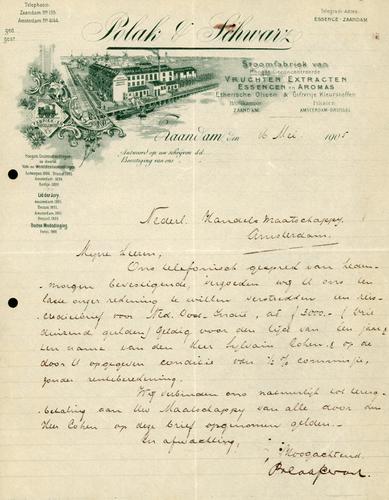 Telephoon:
Zaandam No 155.
Amsterdam No 4144.
Telegram-Adres:
ESSENCE-ZAANDAM
Polak & Schwarz
Stoomfabriek van
Hoogst Geconcentreerde
VRUCHTEN EXTRACTEN
ESSENCEN en AROMAS
Etherische Olieën & Gifvrije Kleurstoffen
Hoofdkantoor: ZAANDAM.
Filialen: AMSTERDAM-BRUSSEL
Zaandam, den 16 Mei 1905
Antwoord op uw schrijven d.d.
Bevestiging van ons
Hoogste Onderscheidingen
Lid der Jury.
Buiten Mededinging
Parijs 1900
Nederl. Handels Maatschappy.
Amsterdam.
Myne Heeren,
Ons telefonisch gesprek van heden-
morgen bevestigende, verzoeken wy U ons ten
laste onzer rekening te willen verstrekken een reis-
credietbrief voor Ned. Oost-Indie, at f 3000.- (drie
duizend gulden) geldig voor den tyd van een jaar
ten name van den Heer Sylvain Cohen & op de
door U opgegeven conditie van ½ % commissie,
zonder renteberekening.
Wy verbinden ons natuurlijk tot terug-
betaling aan Uw Maatschappy van alle door den
Heer Cohen op deze brief opgenomen gelden.-
In afwachting,
Hoogachtend